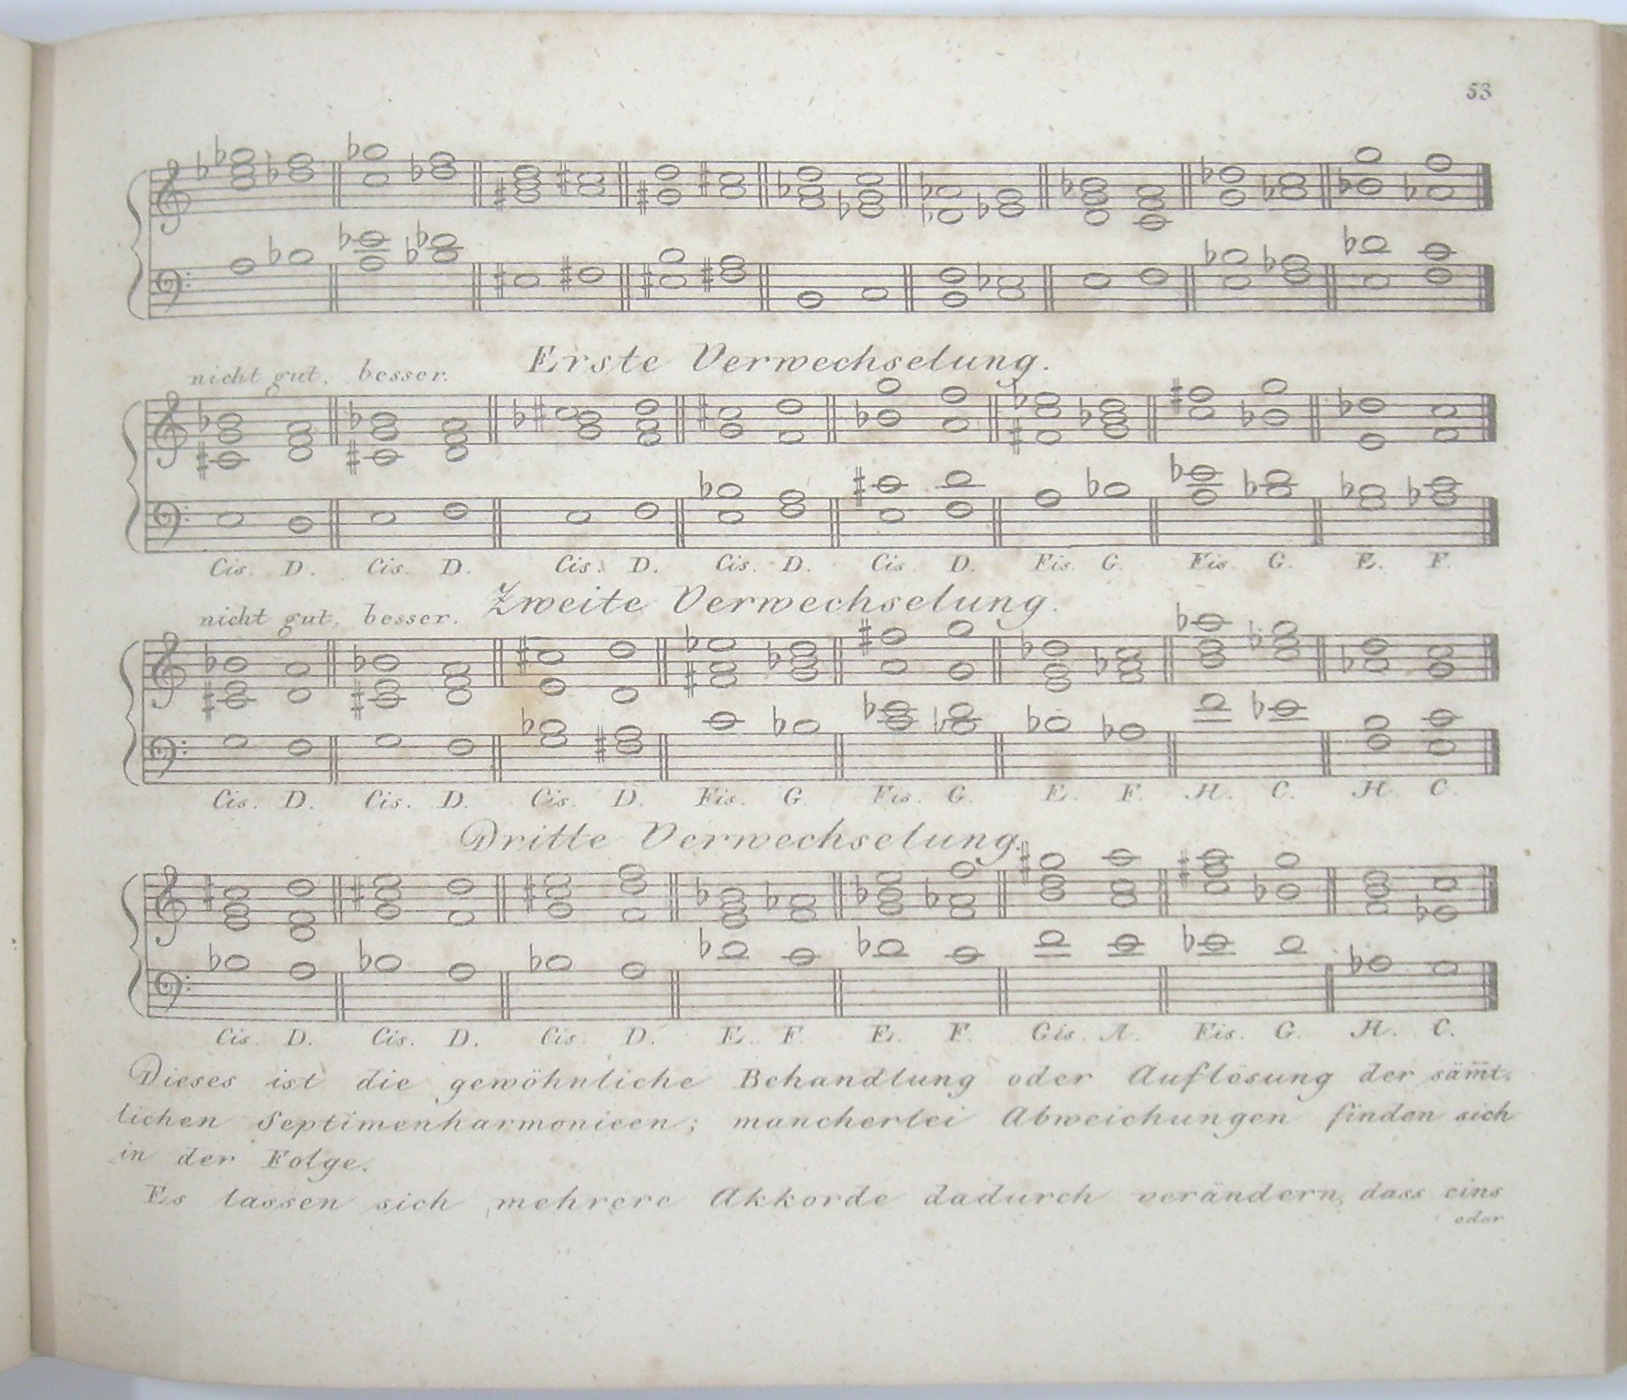 53
Erste Verwechselung.
nicht gut, besser.
Cis. D. Cis. D. Cis. D. Cis. D. Cis. D. Fis. G. Fis. G. E. F.
Zweite Verwechselung.
nicht gut, besser.
Cis. D. Cis. D. Cis. D. Fis. G. Fis. G. E. F. H. C. H. C.
Dritte Verwechselung.
Cis. D. Cis. D. Cis. D. E. F. E. F. Gis. A. Fis. G. H. C.
Dieses ist die gewöhnliche Behandlung oder Auflösung der säm̅t-
lichen Septimenharmonieen; mancherlei Abweichungen finden sich
in der Folge.
Es lassen sich mehrere Akkorde dadurch verändern, dass eins
oder